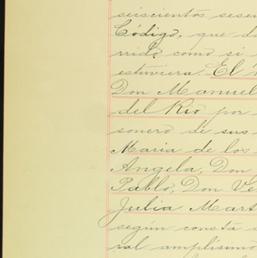 seiscientos sesen
Código, que d
rrido como si
estuviera. El
Don Manuel
del Rio por
sonero de sus
Maria de los
Angela, Don
Pablo, Don Ve
Julia Mart
según consta
ral amplísimo